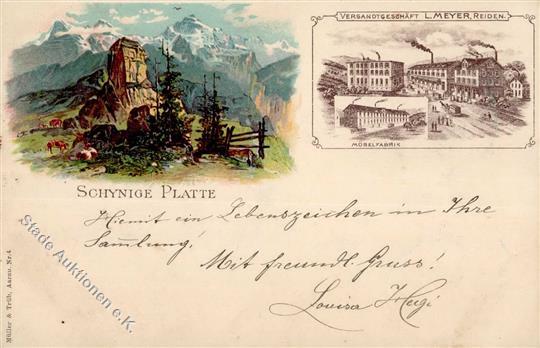 VERSANDTGESCHÄFT L. MEYER, REIDEN.
MÖBELFABRIK
SCHYNIGE PLATTE
Hiemit ein Lebenszeichen in Ihre
Sammlung!
Mit freundl. Gruss!
Louisa Hegi
Müller & Trüb, Aarau. Nr. 4
Stade Auktionen e.K.